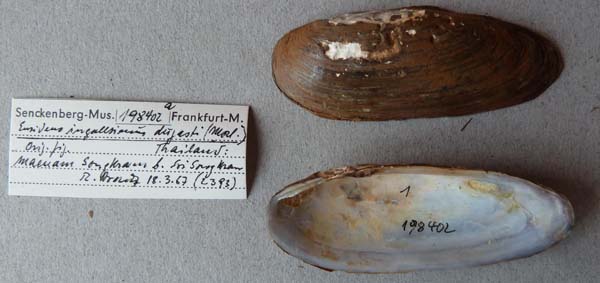 Senckenberg-Mus. 198402 a Frankfurt-M.
Ensidens ingallsianus dugasti (Morl.)
Orig. fig. Thailand:
Maenam Songkram b. Sri Songkram
R. 18.3.67 (L393)
1
198402